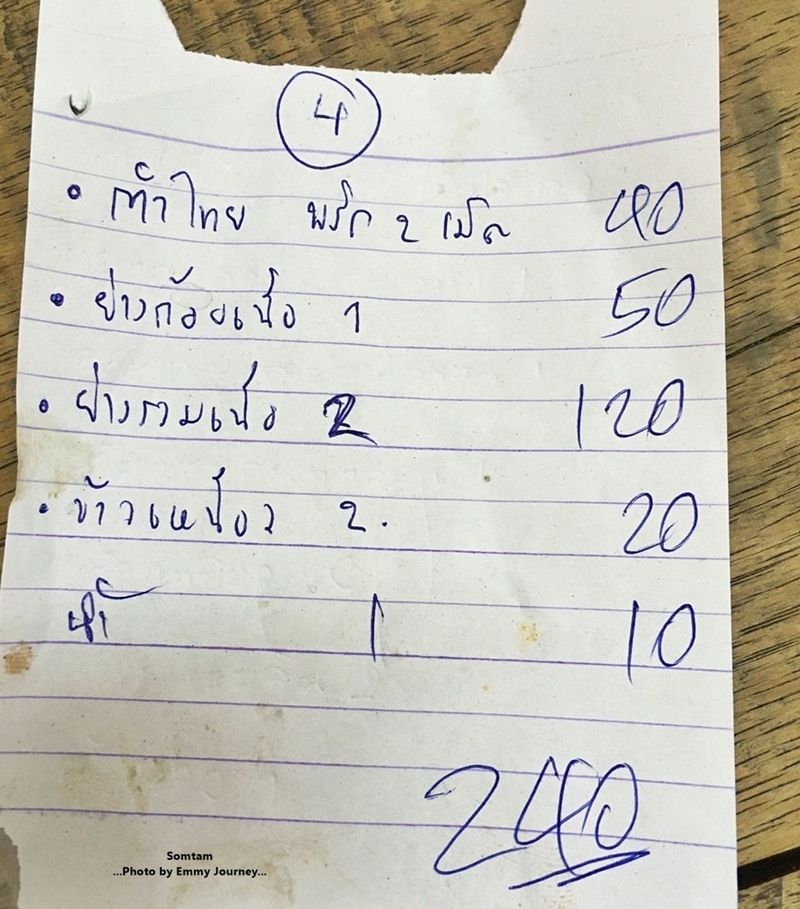 4
• ตำไทย พริก 2 เม็ด 40
• ย่างก้อยเนื้อ 1 50
• ย่างรวมเนื้อ 2 120
• ข้าวเหนียว 2. 20
น้ำ 1 10
240
Somtam
...Photo by Emmy Journey...